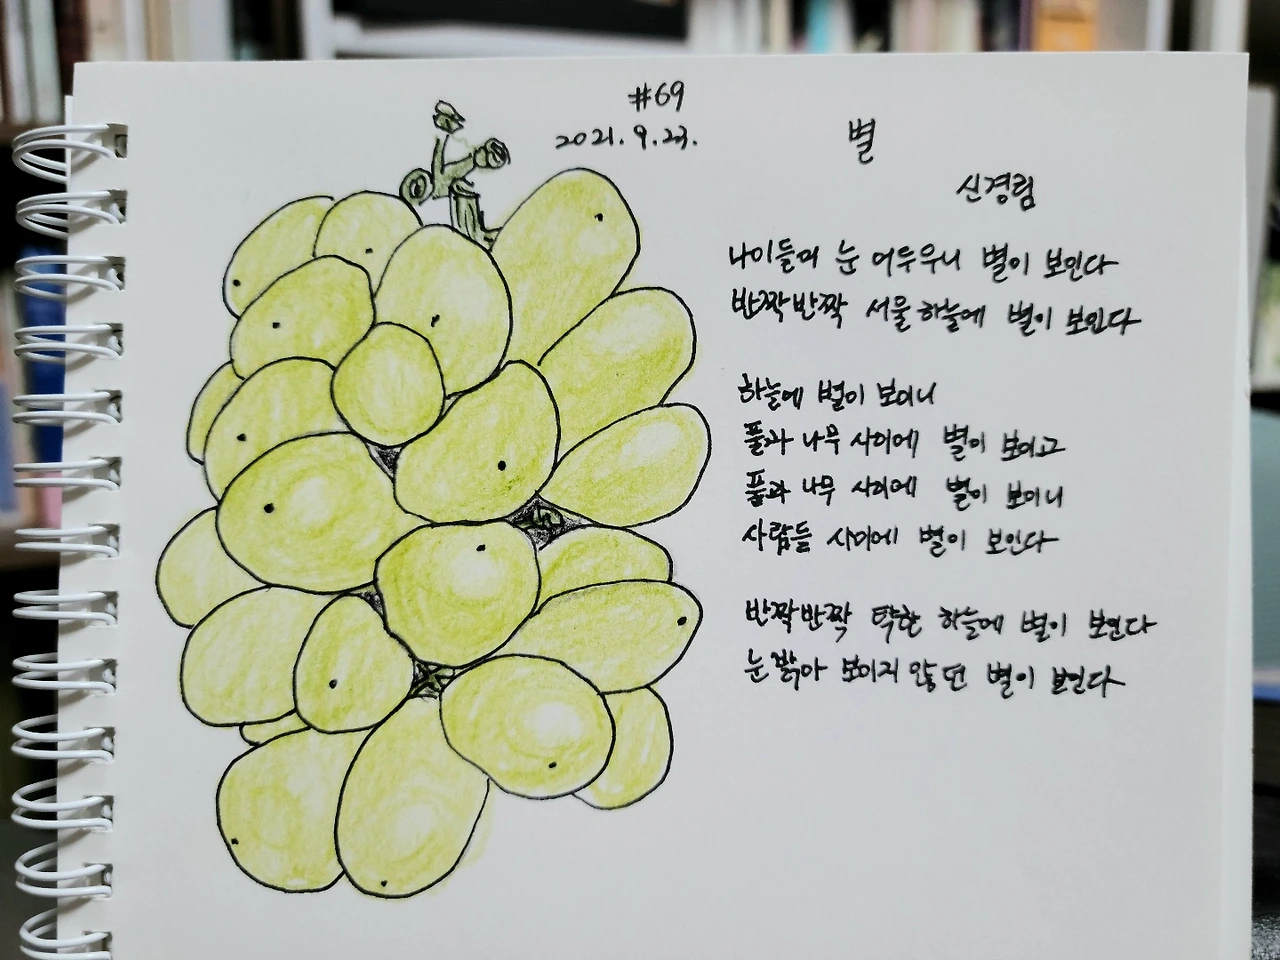 #69
2021.9.23.
별
신경림
나이들어 눈 어두우니 별이 보인다
반짝반짝 서울 하늘에 별이 보인다
하늘에 별이 보이니
풀과 나무 사이에 별이 보이고
풀과 나무 사이에 별이 보이니
사람들 사이에 별이 보인다
반짝반짝 탁한 하늘에 별이 보인다
눈 밝아 보이지 않던 별이 보인다